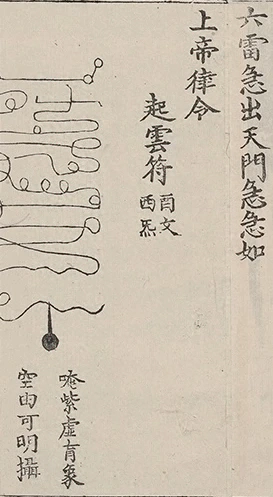 六雷急出天門急急如
上帝律令
起雲符
酉文
西炁
唵紫虛育象
空由可明攝